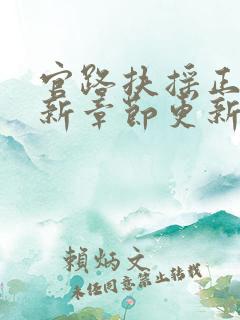 官路扶摇正
新章節更新
賴炳文
未经同意禁止转载